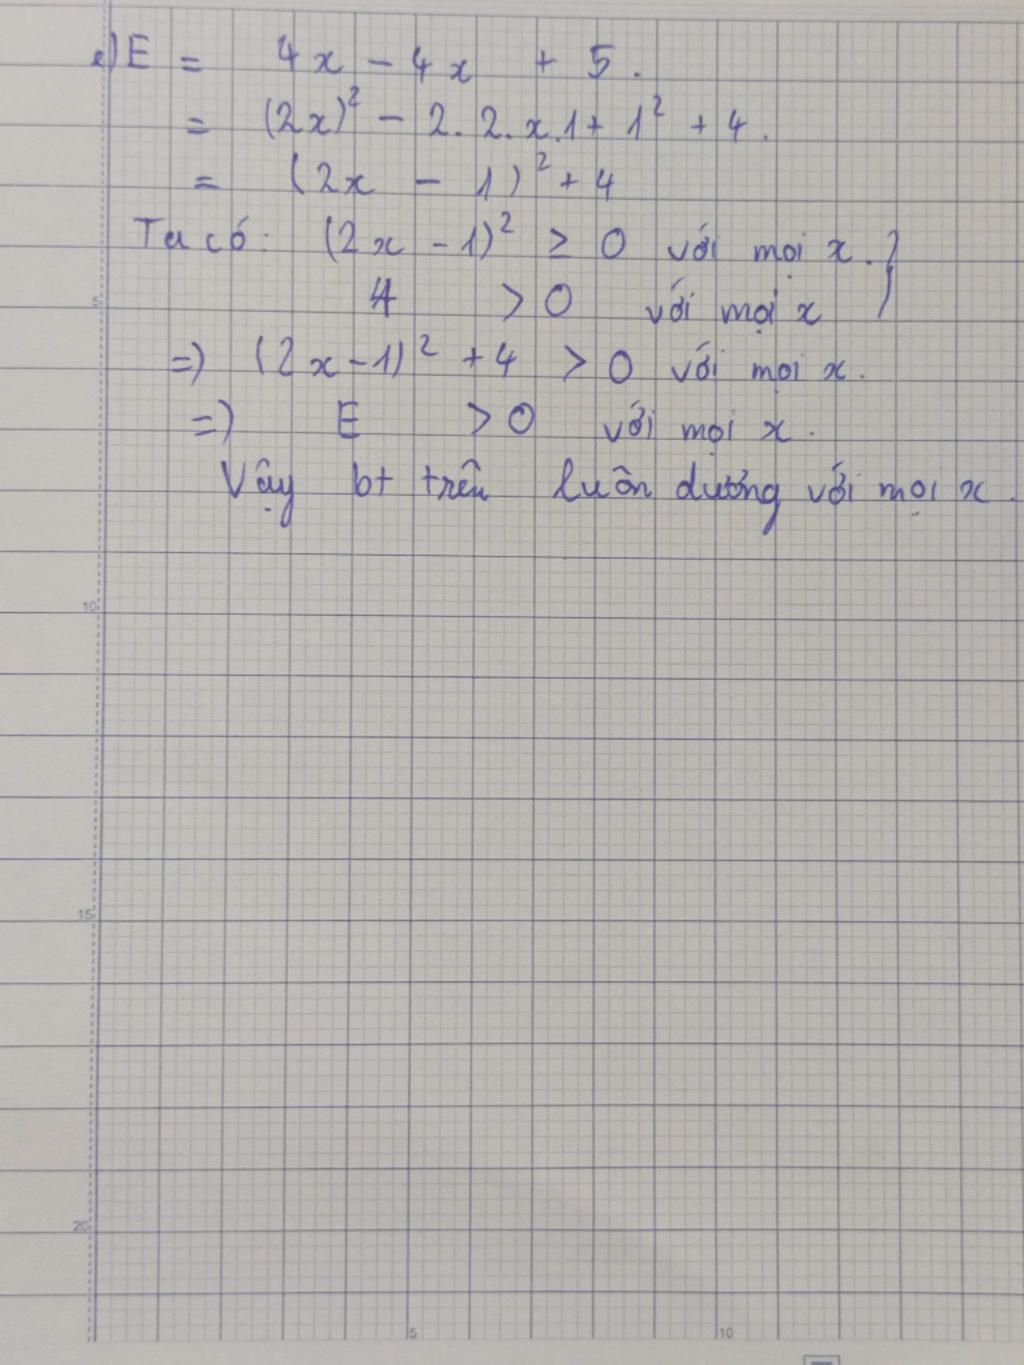 e) E = 4x - 4x + 5.
= (2x)² - 2.2.x.1 + 1² + 4.
= (2x - 1)² + 4
Ta có: (2x - 1)² ≥ 0 với mọi x. }
4 > 0 với mọi x
=) (2x - 1)² + 4 > 0 với mọi x.
=) E > 0 với mọi x.
Vậy bt trên luôn dương với mọi x.
5
10
15
20
5
10